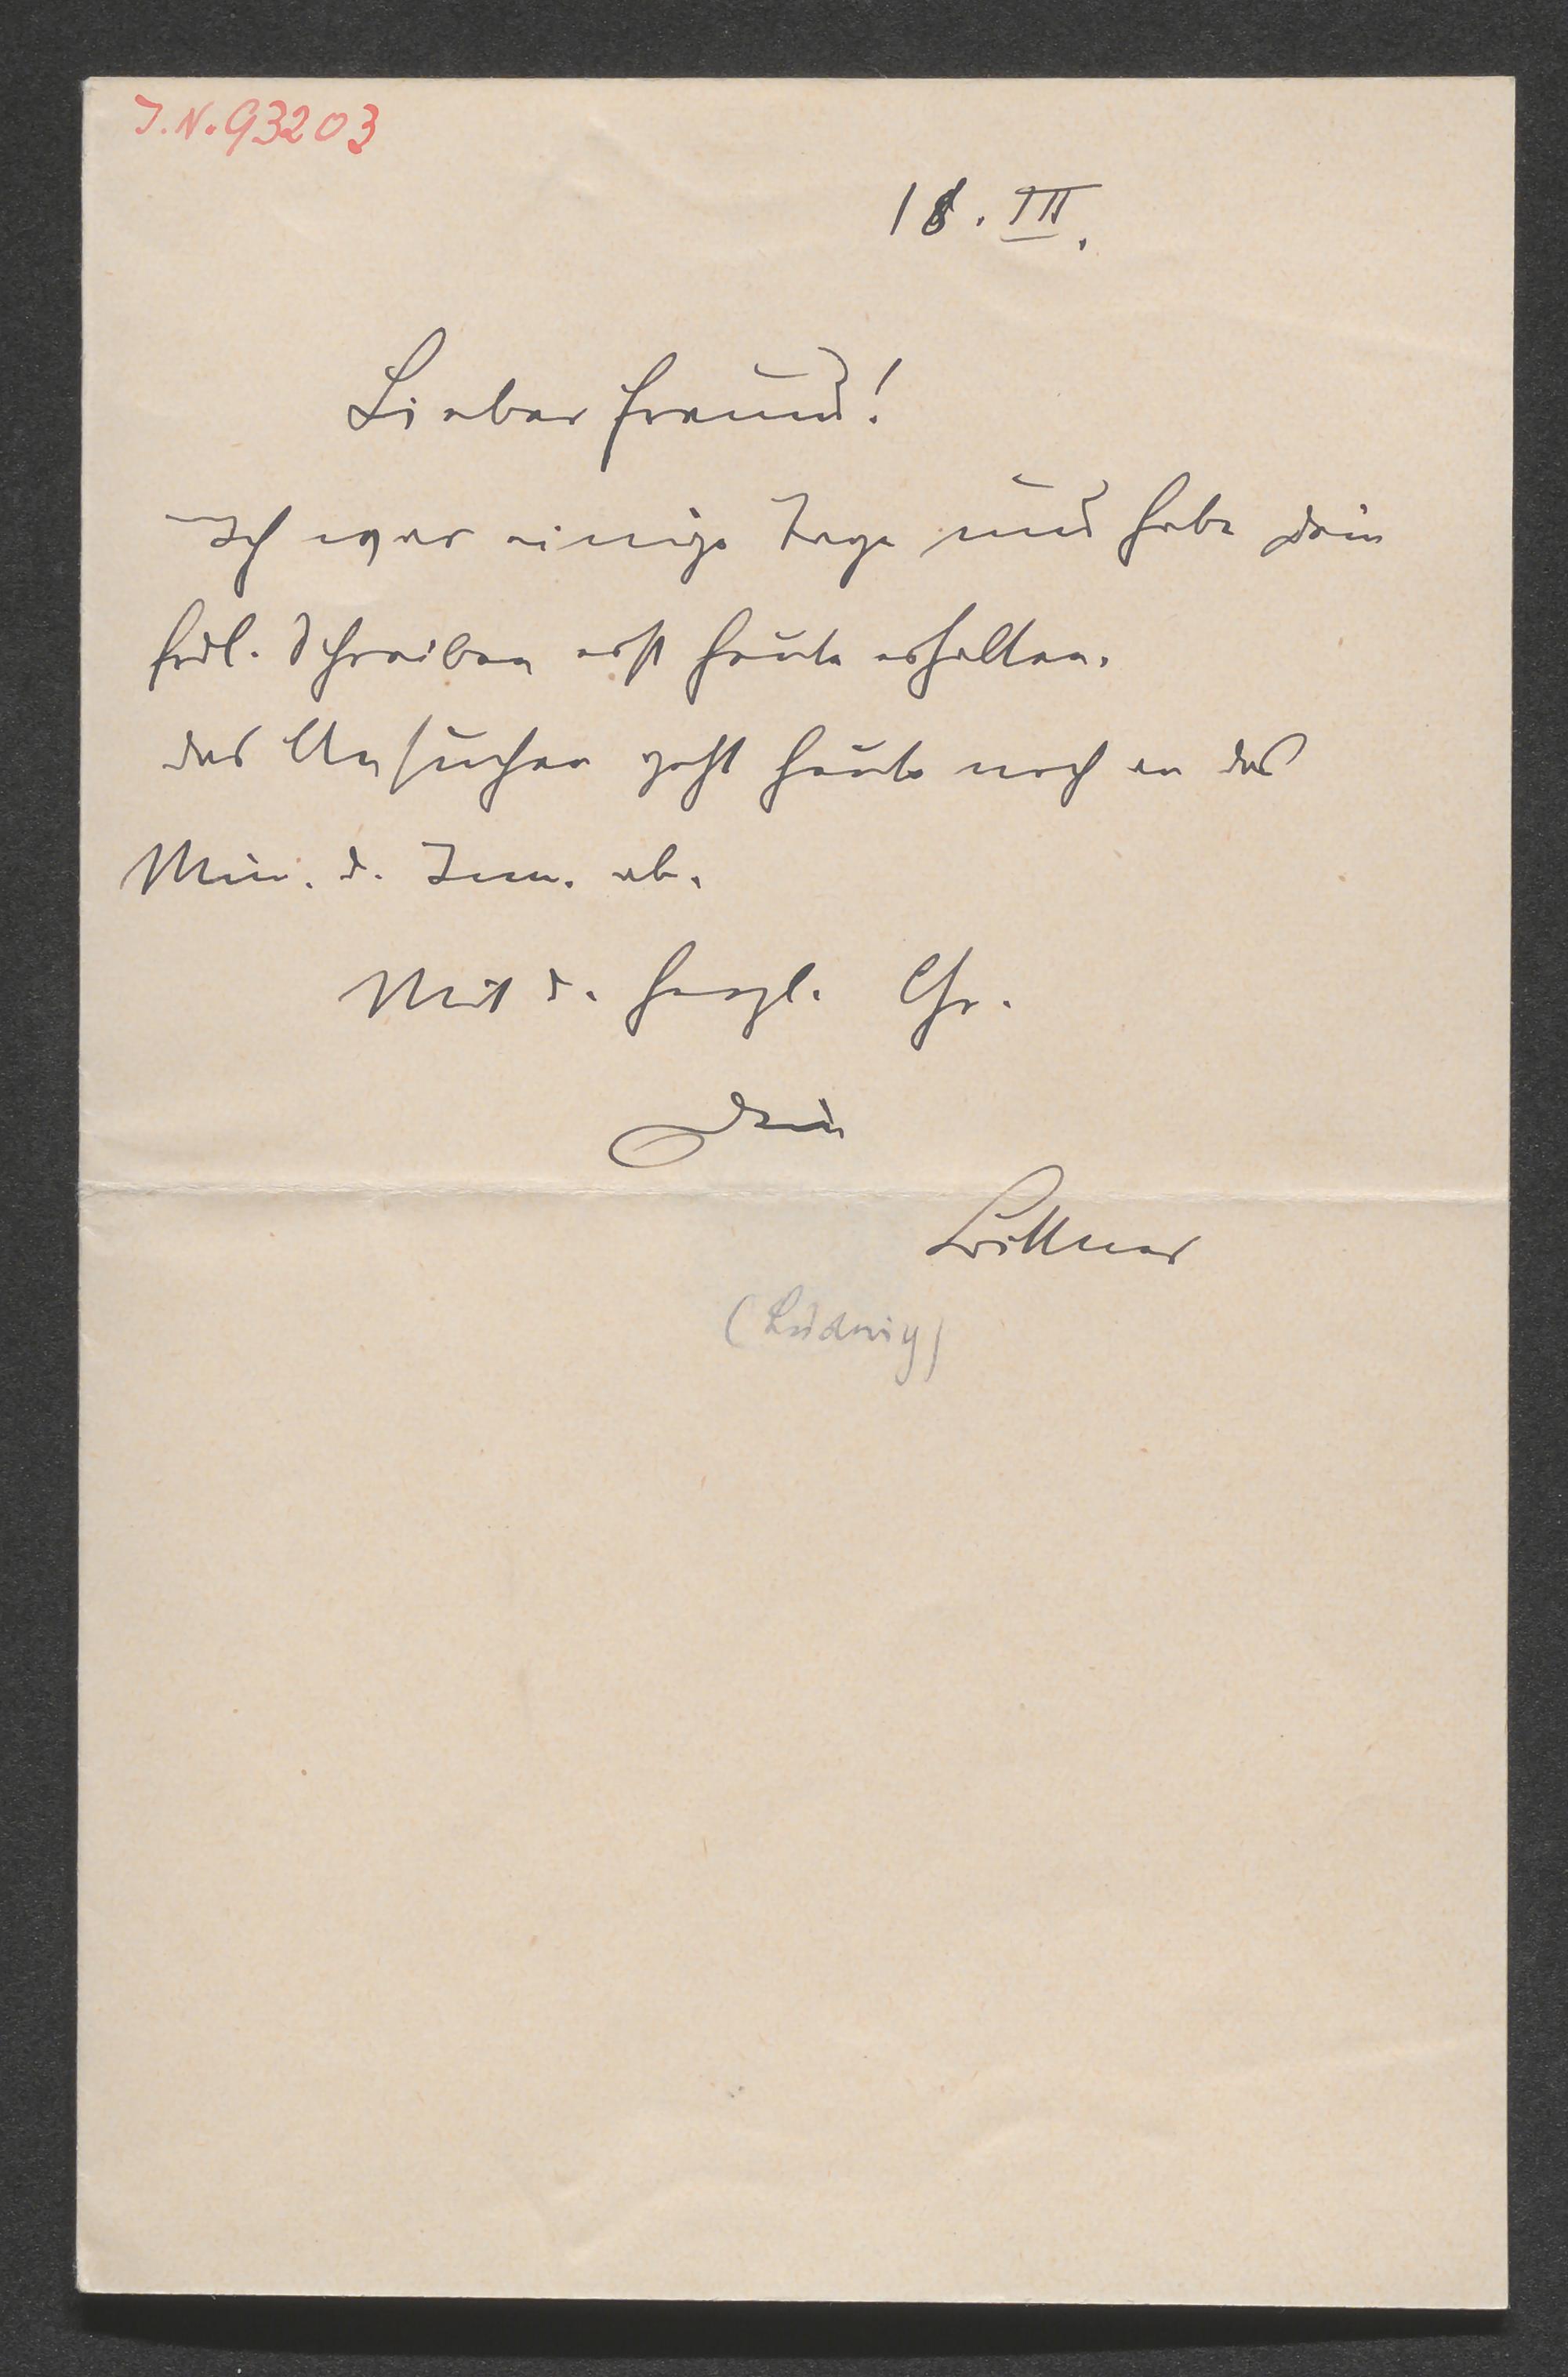 I.N. 93203
18. III.
Lieber Freund!
Ich war einige Tage und habe Dein
frdl. Schreiben erst heute erhalten.
Das Ansuchen geht heute noch an das
Min. d. Inn. ab.
Mit d. herzl. Gr.
Dein
Bittner
(Ludwig)